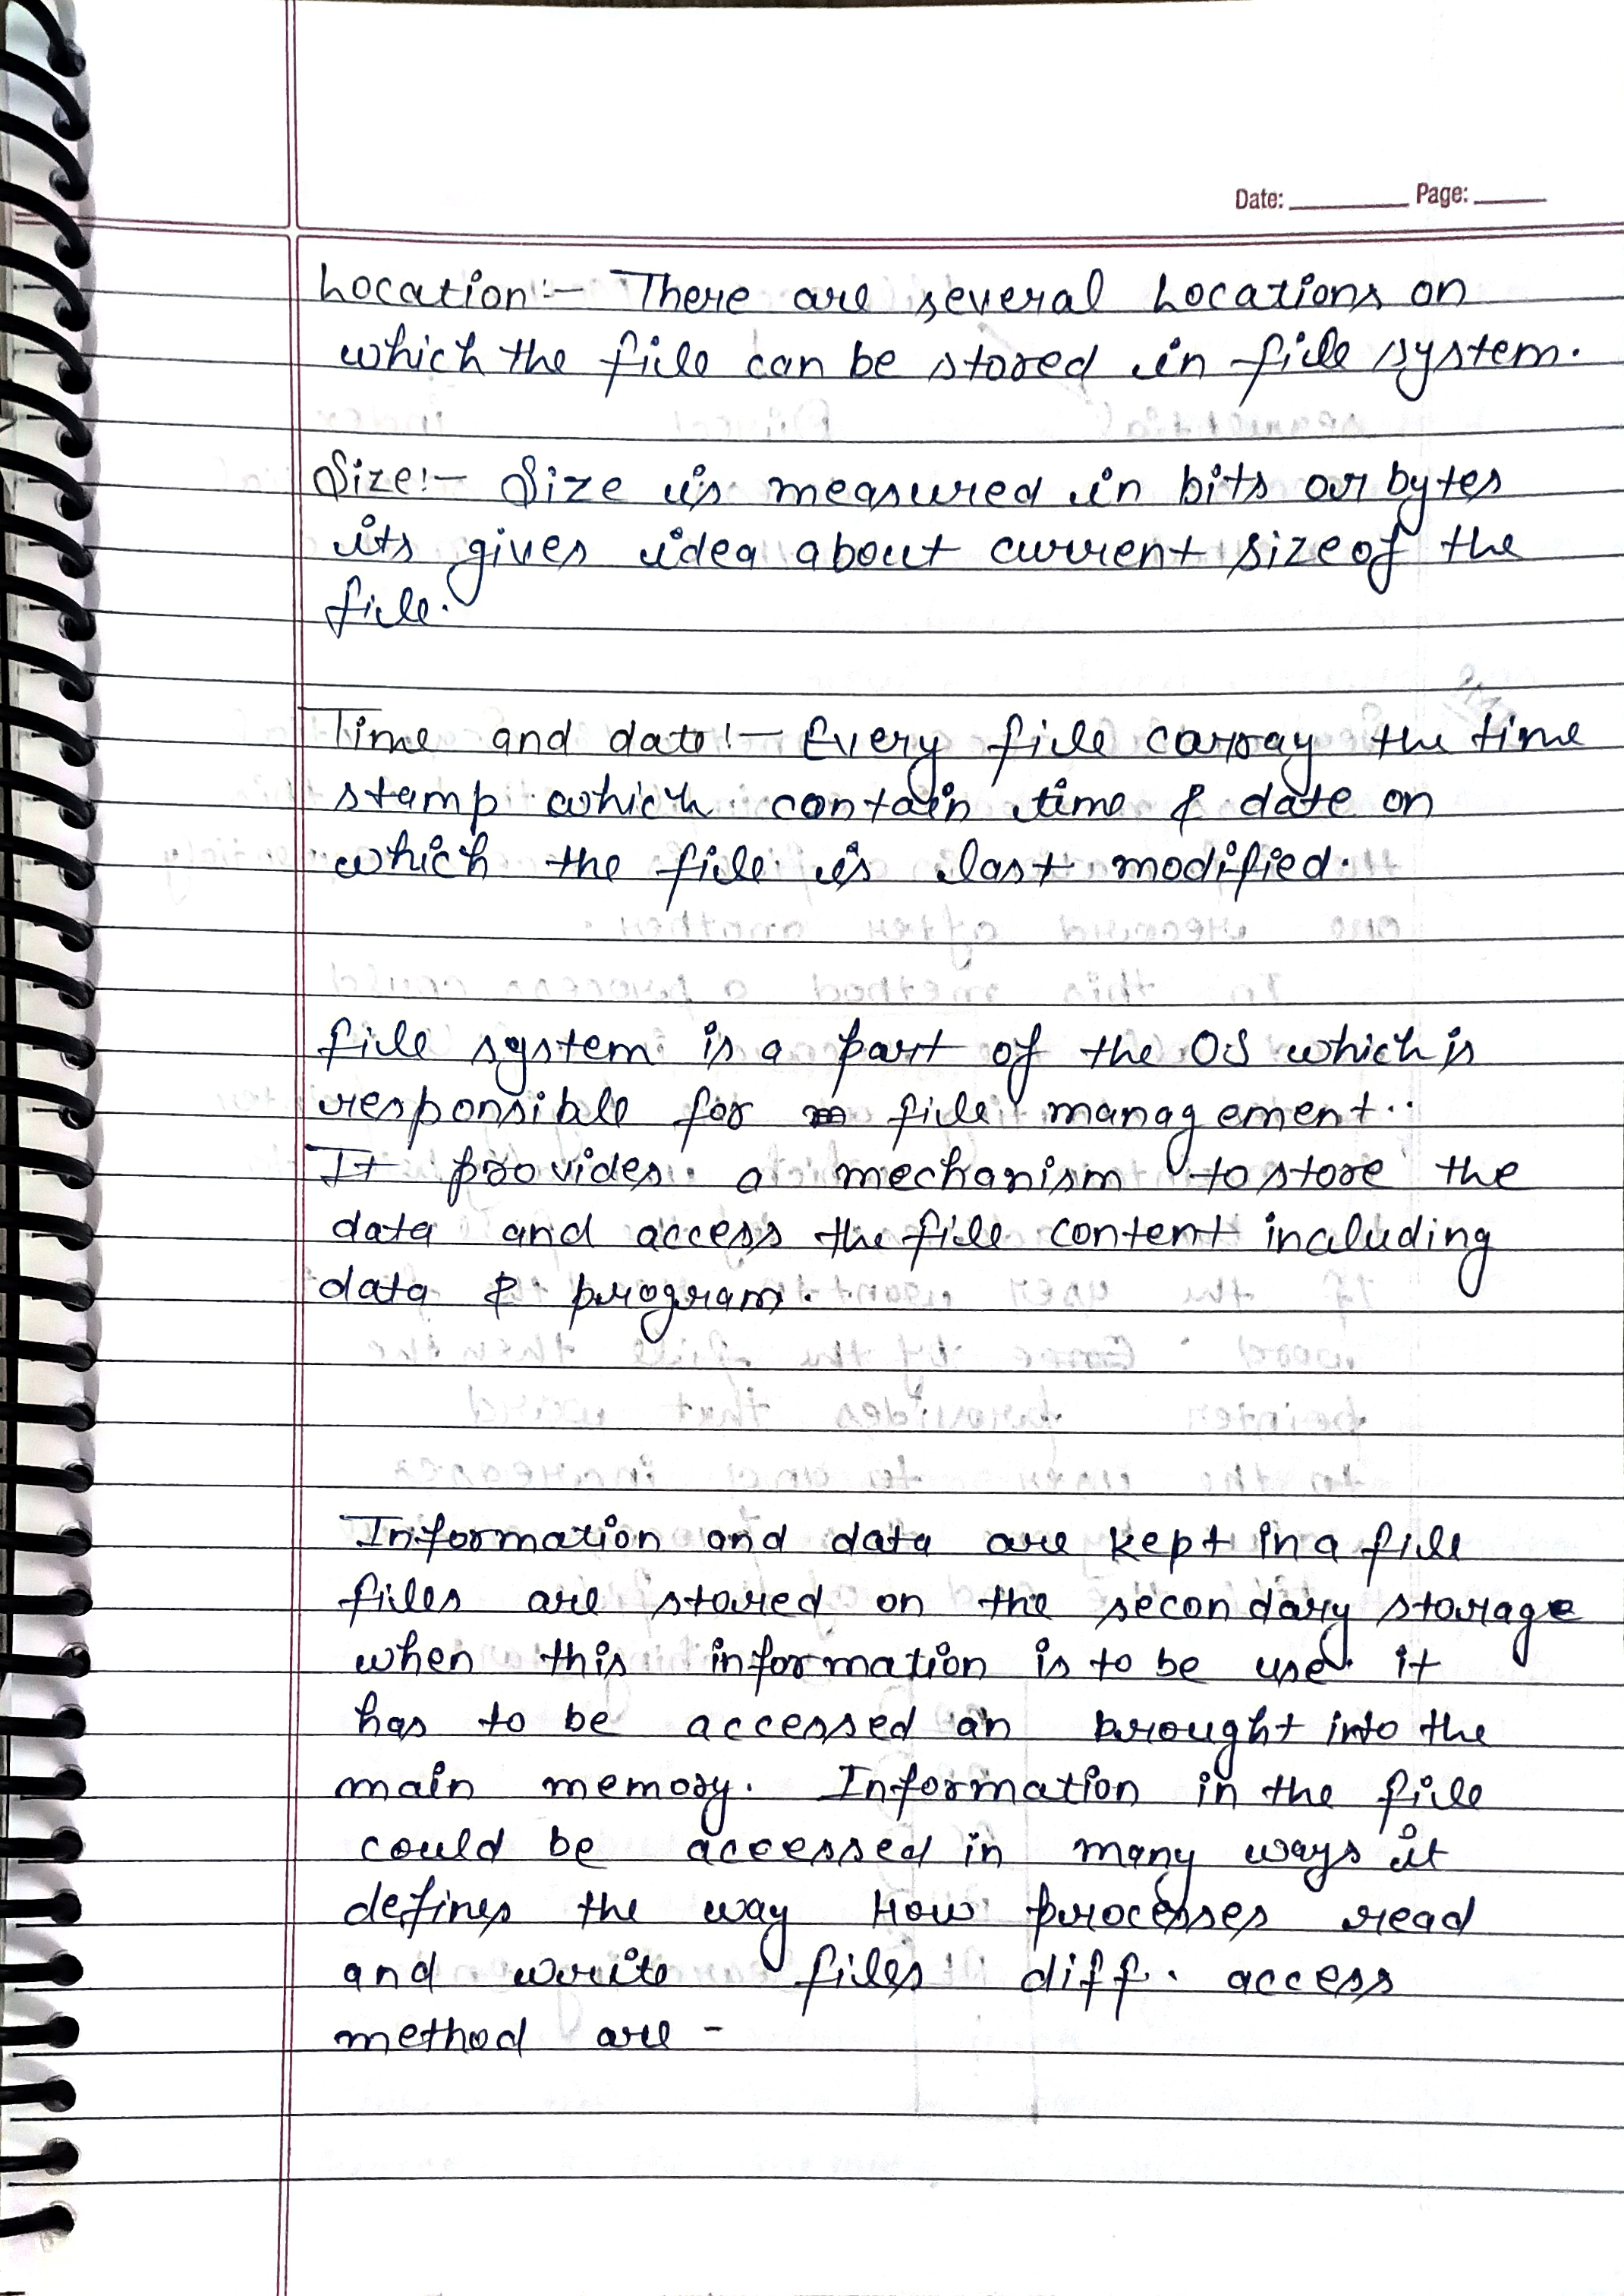 Date: Page:
Location:- There are several Locations on
which the file can be stored in file system.
Size:- Size is measured in bits or bytes
its gives idea about current size of the
file.
Time and date:- Every file carray the time
stamp which contain time & date on
which the file is last modified.
file system is a part of the OS which is
responsible for file management..
It provides a mechanism to store the
data and access the file content including
data & program.
Information and data are kept in a file
files are stored on the secondary storage
when this information is to be use it
has to be accessed an brought into the
main memory. Information in the file
could be accessed in many ways it
defines the way How processes read
and write files diff. access
method are -